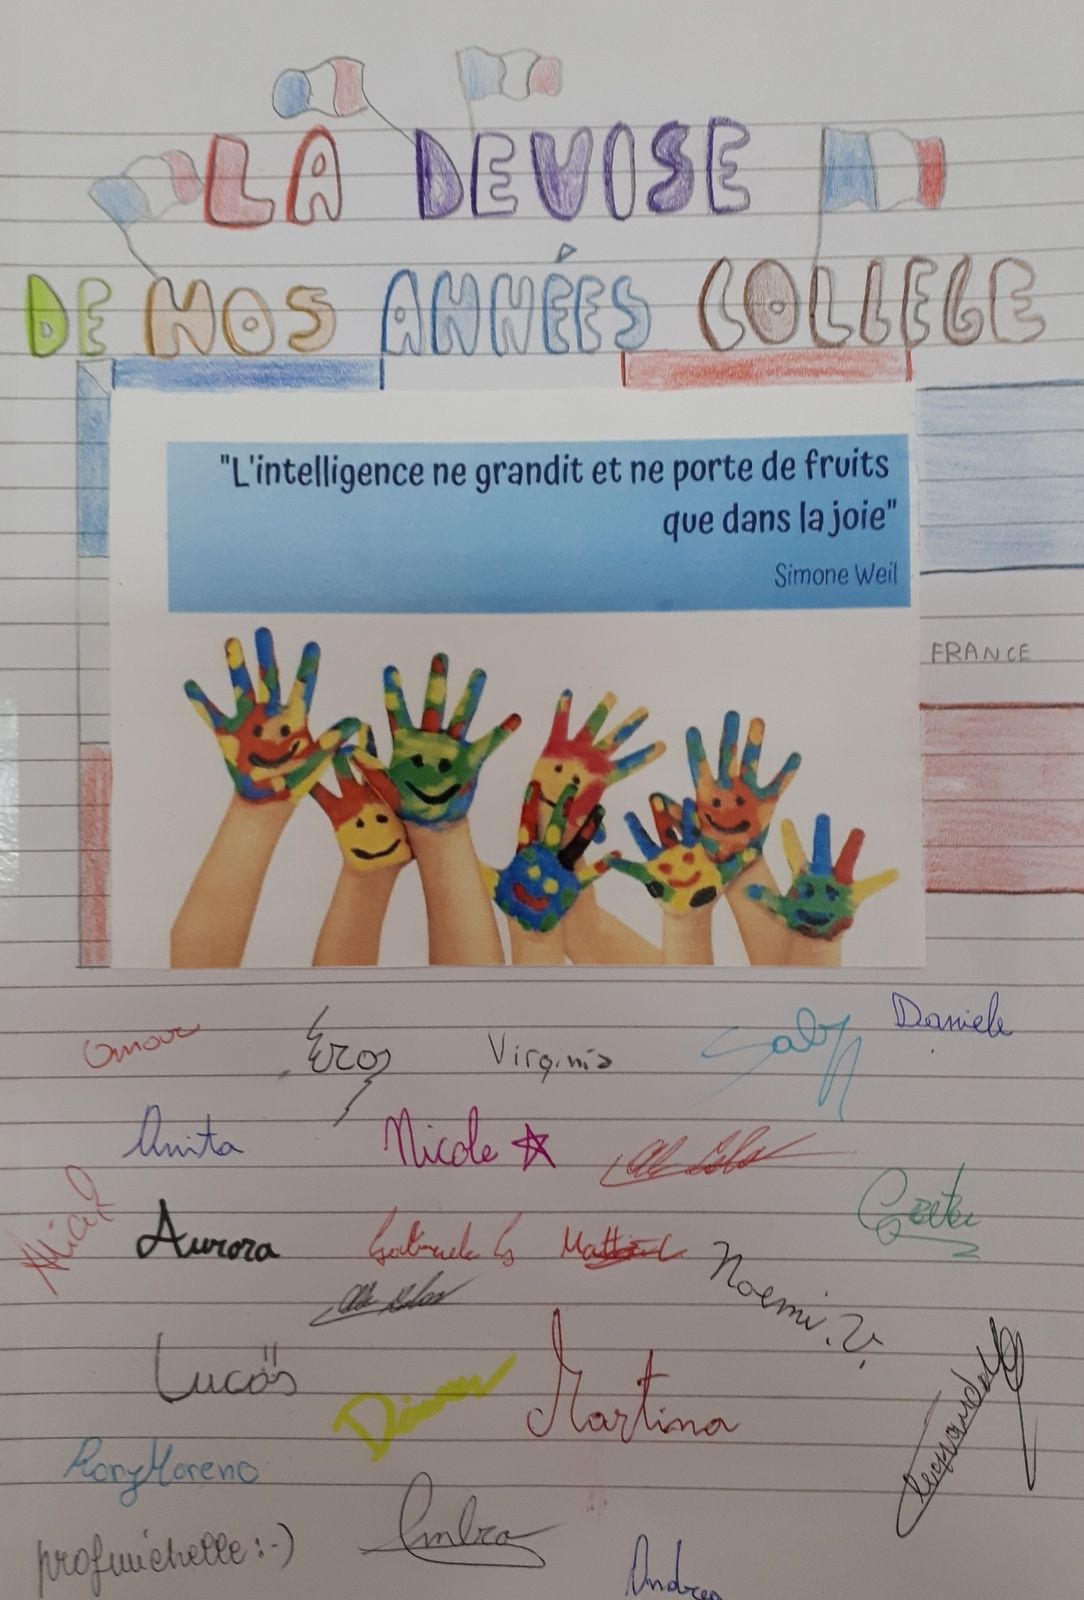 LA DEVISE
DE NOS ANNÉES COLLEGE
"L'intelligence ne grandit et ne porte de fruits
que dans la joie"
Simone Weil
FRANCE
Omar
Eros
Virginia
Saby
Daniele
Anita
Nicole
Aurora
Gabriele G
Noemi.V.
Lucas
Martina
Rory Moreno
Leonardo
profmichelle:-)
Ambra
Andrea